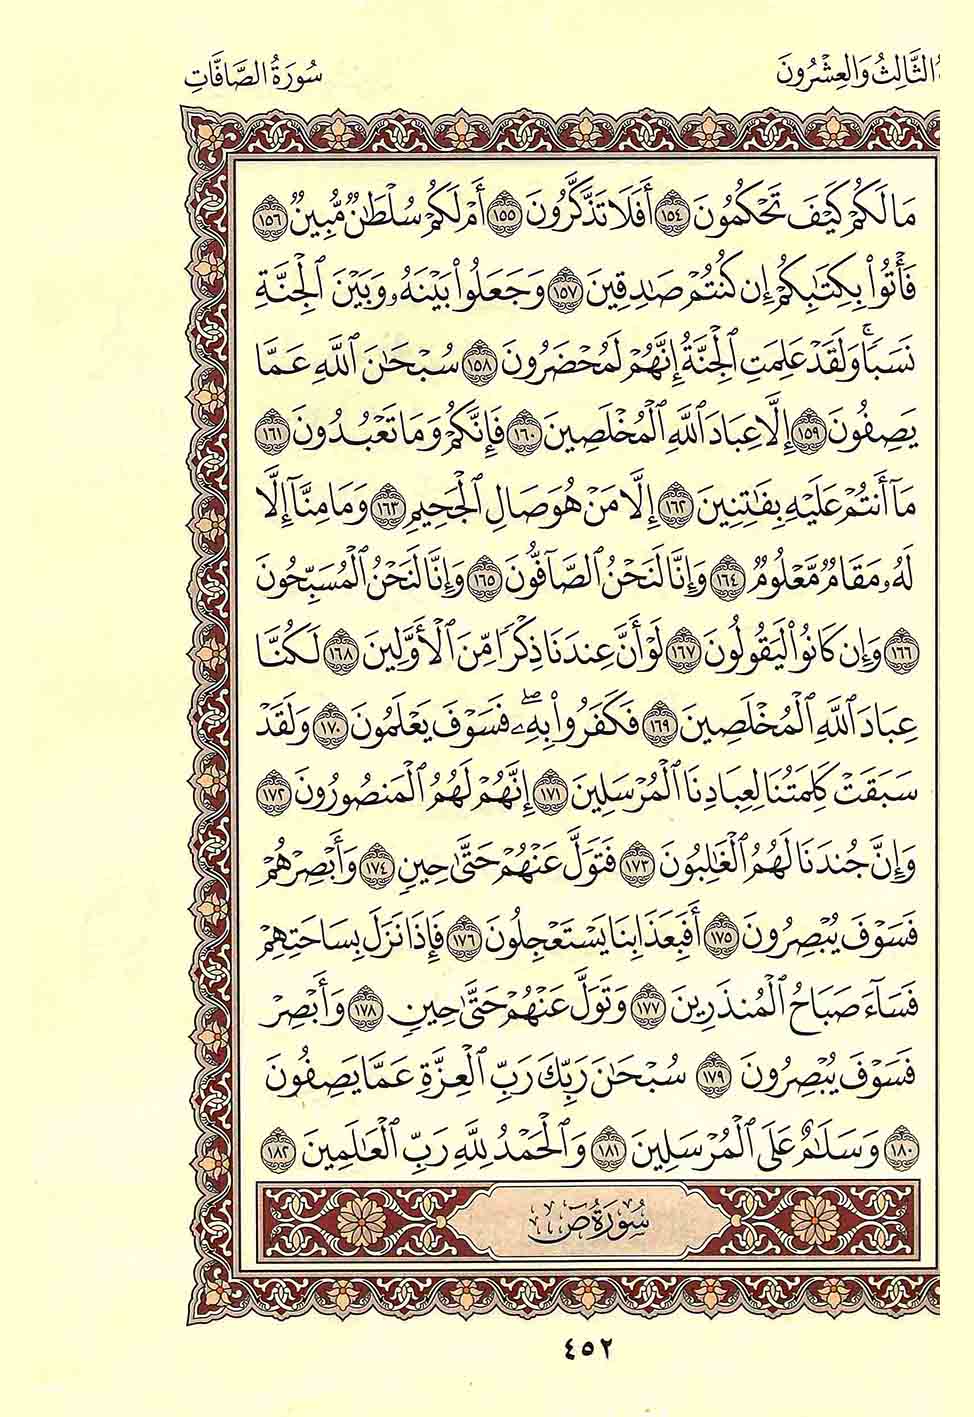 الثَّالِثُ وَالْعِشْرُونَ
سُورَةُ الصَّافَّاتِ
مَا لَكُمْ كَيْفَ تَحْكُمُونَ ١٥٤ أَفَلَا تَذَكَّرُونَ ١٥٥ أَمْ لَكُمْ سُلْطَٰنٌ مُّبِينٌ ١٥٦
فَأْتُوا۟ بِكِتَٰبِكُمْ إِن كُنتُمْ صَٰدِقِينَ ١٥٧ وَجَعَلُوا۟ بَيْنَهُۥ وَبَيْنَ ٱلْجِنَّةِ
نَسَبًا ۚ وَلَقَدْ عَلِمَتِ ٱلْجِنَّةُ إِنَّهُمْ لَمُحْضَرُونَ ١٥٨ سُبْحَٰنَ ٱللَّهِ عَمَّا
يَصِفُونَ ١٥٩ إِلَّا عِبَادَ ٱللَّهِ ٱلْمُخْلَصِينَ ١٦٠ فَإِنَّكُمْ وَمَا تَعْبُدُونَ ١٦١
مَآ أَنتُمْ عَلَيْهِ بِفَٰتِنِينَ ١٦٢ إِلَّا مَنْ هُوَ صَالِ ٱلْجَحِيمِ ١٦٣ وَمَا مِنَّآ إِلَّا
لَهُۥ مَقَامٌ مَّعْلُومٌ ١٦٤ وَإِنَّا لَنَحْنُ ٱلصَّآفُّونَ ١٦٥ وَإِنَّا لَنَحْنُ ٱلْمُسَبِّحُونَ
١٦٦ وَإِن كَانُوا۟ لَيَقُولُونَ ١٦٧ لَوْ أَنَّ عِندَنَا ذِكْرًا مِّنَ ٱلْأَوَّلِينَ ١٦٨ لَكُنَّا
عِبَادَ ٱللَّهِ ٱلْمُخْلَصِينَ ١٦٩ فَكَفَرُوا۟ بِهِۦ ۖ فَسَوْفَ يَعْلَمُونَ ١٧٠ وَلَقَدْ
سَبَقَتْ كَلِمَتُنَا لِعِبَادِنَا ٱلْمُرْسَلِينَ ١٧١ إِنَّهُمْ لَهُمُ ٱلْمَنصُورُونَ ١٧٢
وَإِنَّ جُندَنَا لَهُمُ ٱلْغَٰلِبُونَ ١٧٣ فَتَوَلَّ عَنْهُمْ حَتَّىٰ حِينٍ ١٧٤ وَأَبْصِرْهُمْ
فَسَوْفَ يُبْصِرُونَ ١٧٥ أَفَبِعَذَابِنَا يَسْتَعْجِلُونَ ١٧٦ فَإِذَا نَزَلَ بِسَاحَتِهِمْ
فَسَآءَ صَبَاحُ ٱلْمُنذَرِينَ ١٧٧ وَتَوَلَّ عَنْهُمْ حَتَّىٰ حِينٍ ١٧٨ وَأَبْصِرْ
فَسَوْفَ يُبْصِرُونَ ١٧٩ سُبْحَٰنَ رَبِّكَ رَبِّ ٱلْعِزَّةِ عَمَّا يَصِفُونَ
١٨٠ وَسَلَٰمٌ عَلَى ٱلْمُرْسَلِينَ ١٨١ وَٱلْحَمْدُ لِلَّهِ رَبِّ ٱلْعَٰلَمِينَ ١٨٢
سُورَةُ صٓ
٤٥٢